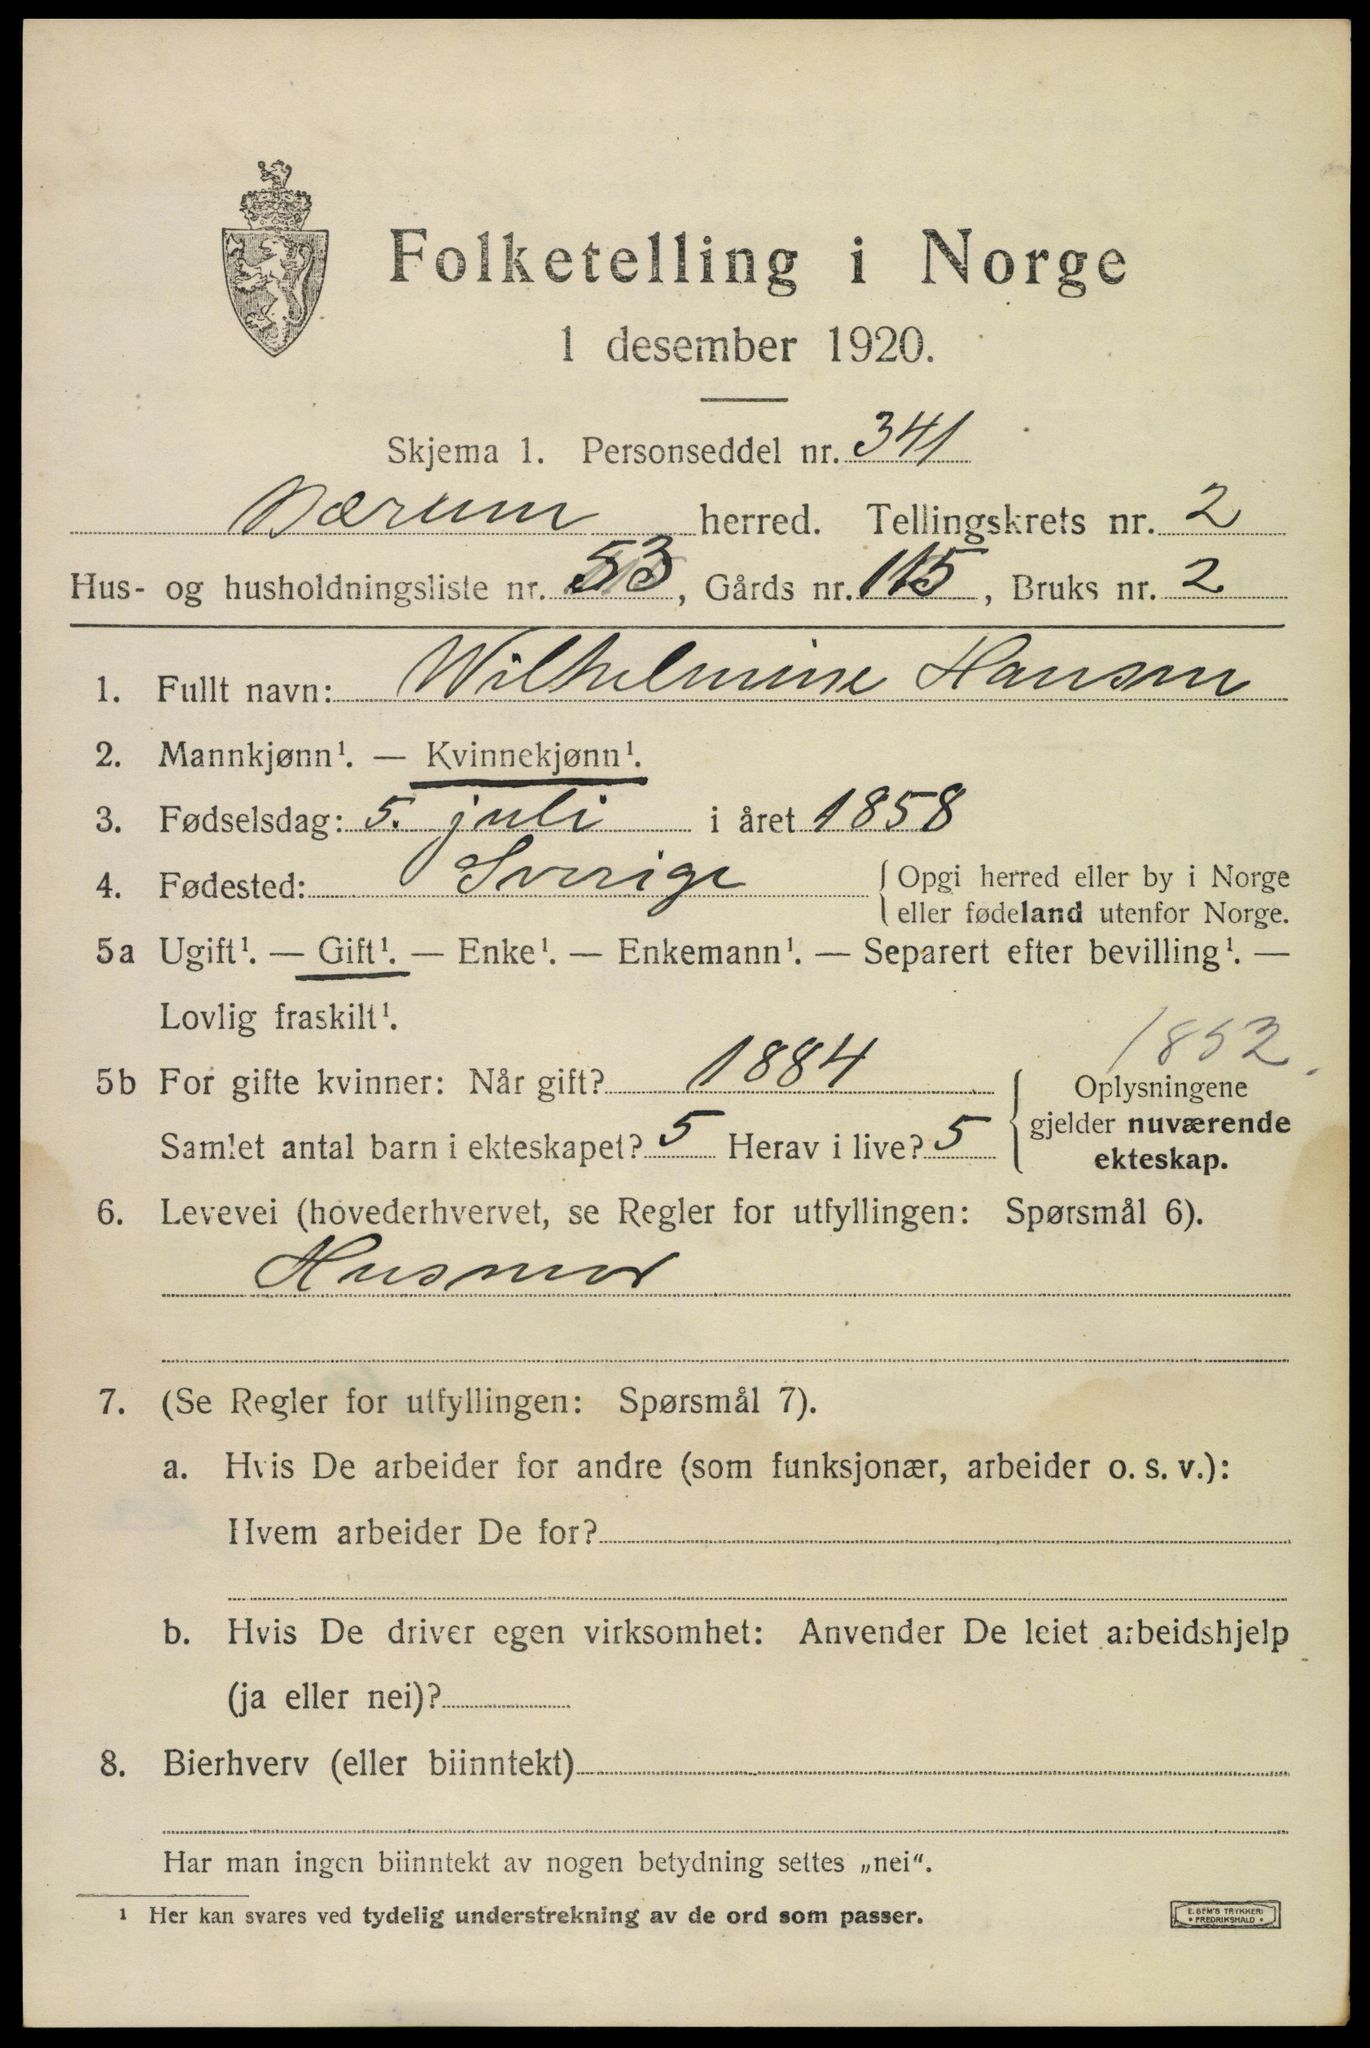 Folketelling i Norge
1 desember 1920.
Skjema 1. Personseddel nr. 341
Bærum herred. Tellingskrets nr. 2
Hus- og husholdningsliste nr. 53, Gårds nr. 115, Bruks nr. 2
1. Fullt navn: Wilhelmine Hansen
2. Mannkjønn¹. — Kvinnekjønn¹.
3. Fødselsdag: 5. juli i året 1858
4. Fødested: Sverige {Opgi herred eller by i Norge
eller fødeland utenfor Norge.
5a Ugift¹. — Gift¹. — Enke¹. — Enkemann¹. — Separert efter bevilling¹. —
Lovlig fraskilt¹.
1852
5b For gifte kvinner: Når gift? 1884 Oplysningene
gjelder nuværende
Samlet antal barn i ekteskapet? 5 Herav i live? 5
ekteskap.
6. Levevei (hovederhvervet, se Regler for utfyllingen: Spørsmål 6).
Husmor
7. (Se Regler for utfyllingen: Spørsmål 7).
a. Hvis De arbeider for andre (som funksjonær, arbeider o. s. v.):
Hvem arbeider De for?
b. Hvis De driver egen virksomhet: Anvender De leiet arbeidshjelp
(ja eller nei)?
8. Bierhverv (eller biinntekt)
Har man ingen biinntekt av nogen betydning settes „nei“.
¹ Her kan svares ved tydelig understrekning av de ord som passer.
E. SEM'S TRYKKERI
• FREDRIKSHALD •